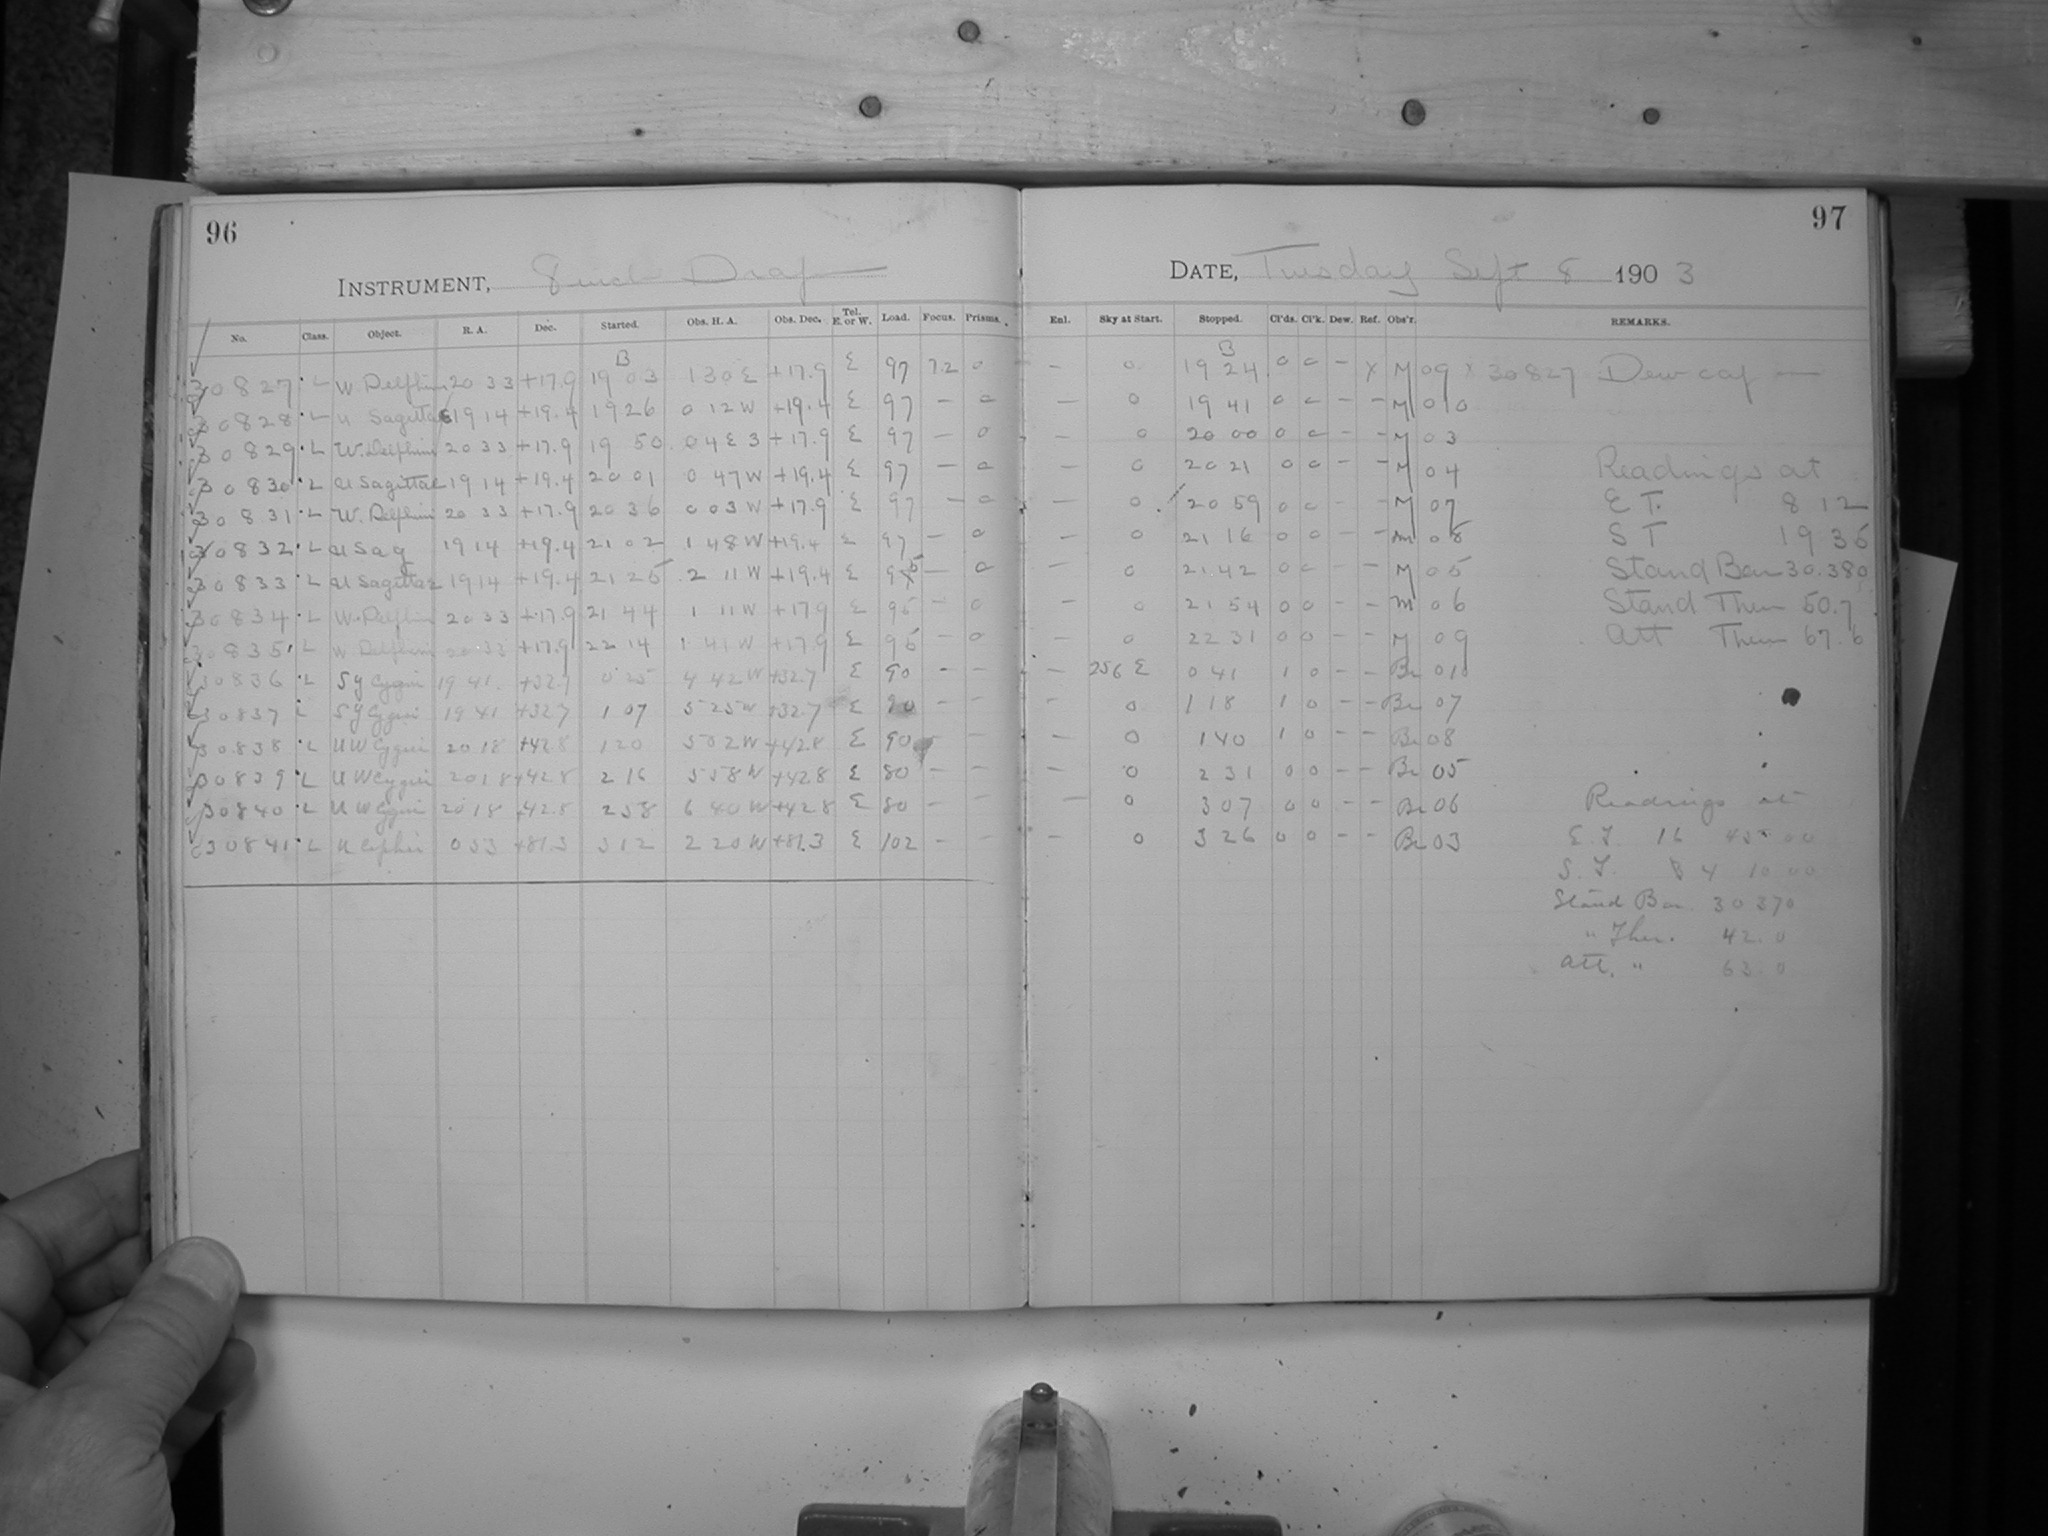 96
97
INSTRUMENT, 8 inch Drap
DATE, Tuesday Sept 8 1903
No. Class. Object. R. A. Dec. Started. Obs. H. A. Obs. Dec. Tel. E. or W. Load. Focus. Prisms. Enl. Sky at Start. Stopped. Cl'ds. Cl'k. Dew. Ref. Obs'r. REMARKS.
B B
30827 L W Delphini 20 33 +17.9 19 03 1 30 E +17.9 E 97 7.2 0 – 0 19 24 0 0 – x M 09 x 30827 Dew cap
30828 L U Sagittae 19 14 +19.4 19 26 0 12 W +19.4 E 97 – 0 – 0 19 41 0 0 – – M 010
30829 L W. Delphini 20 33 +17.9 19 50 0 43 E +17.9 E 97 – 0 – 0 20 00 0 0 – – M 03
30830 L U Sagittae 19 14 +19.4 20 01 0 47 W +19.4 E 97 – 0 – 0 20 21 0 0 – – M 04 Readings at
30831 L W. Delphini 20 33 +17.9 20 36 0 03 W +17.9 E 97 – 0 – 0 20 59 0 0 – – M 07 E T. 8 12
30832 L U Sag 19 14 +19.4 21 02 1 48 W +19.4 E 97 – 0 – 0 21 16 0 0 – – M 08 S T 19 36
30833 L U Sagittae 19 14 +19.4 21 25 2 11 W +19.4 E 95 – 0 – 0 21 42 0 0 – – M 05 Stand Bar 30.380
30834 L W. Delphini 20 33 +17.9 21 44 1 11 W +17.9 E 95 – 0 – 0 21 54 0 0 – – M 06 Stand Ther 50.7
30835 L W Delphini 20 33 +17.9 22 14 1 41 W +17.9 E 95 – 0 – 0 22 31 0 0 – – M 09 Att Ther 67.6
30836 L SY Cygni 19 41 +32.7 0 25 4 42 W +32.7 E 90 – – – 256 E 0 41 1 0 – – Br 010
30837 L SY Cygni 19 41 +32.7 1 07 5 25 W +32.7 E 90 – – – 0 1 18 1 0 – – Br 07
30838 L UW Cygni 20 18 +42.8 1 20 5 02 W +42.8 E 90 – – 0 1 40 1 0 – – Br 08
30839 L UW Cygni 20 18 +42.8 2 16 5 58 W +42.8 E 80 – – – 0 2 31 0 0 – – Br 05
30840 L UW Cygni 20 18 +42.8 2 58 6 40 W +42.8 E 80 – – – 0 3 07 0 0 – – Br 06 Readings at
30841 L U Cephei 0 53 +81.3 3 12 2 20 W +81.3 E 102 – – – 0 3 26 0 0 – – Br 03 E. T. 16 45 00
S. T. 4 10 00
Stand Bar. 30 370
" Ther. 42.0
Att. " 63.0